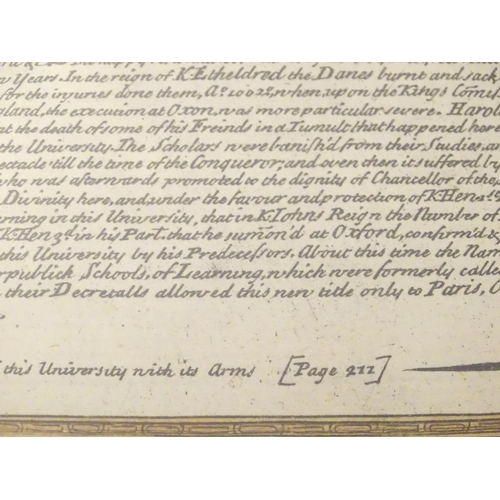 n Years. In the reign of K Etheldred the Danes burnt and sack
for the injuries done them, Aº. 1002, when, upon the Kings Comis
land, the execution at Oxon, was more particular severe. Harol
at the death of some of his Freinds in a Tumult that happened here
the University. The Scholars were banish'd from their Studies, an
ectacle till the time of the Conqueror; and even then it suffered by
who was afterwards promoted to the dignity of Chancellor of the
Divinity here, and under the favour and protection of K Hen. 1st
urning in this University, that in K Iohns Reign the Number of
K Hen 3d. in his Part. that he sum̃on'd at Oxford, confirm'd &
this University by his Predecessors. About this time the Nam
rpublick Schools, of Learning, which were formerly called
their Decretalls allowed this new title only to Paris, O
f this University with its Arms [Page 211]